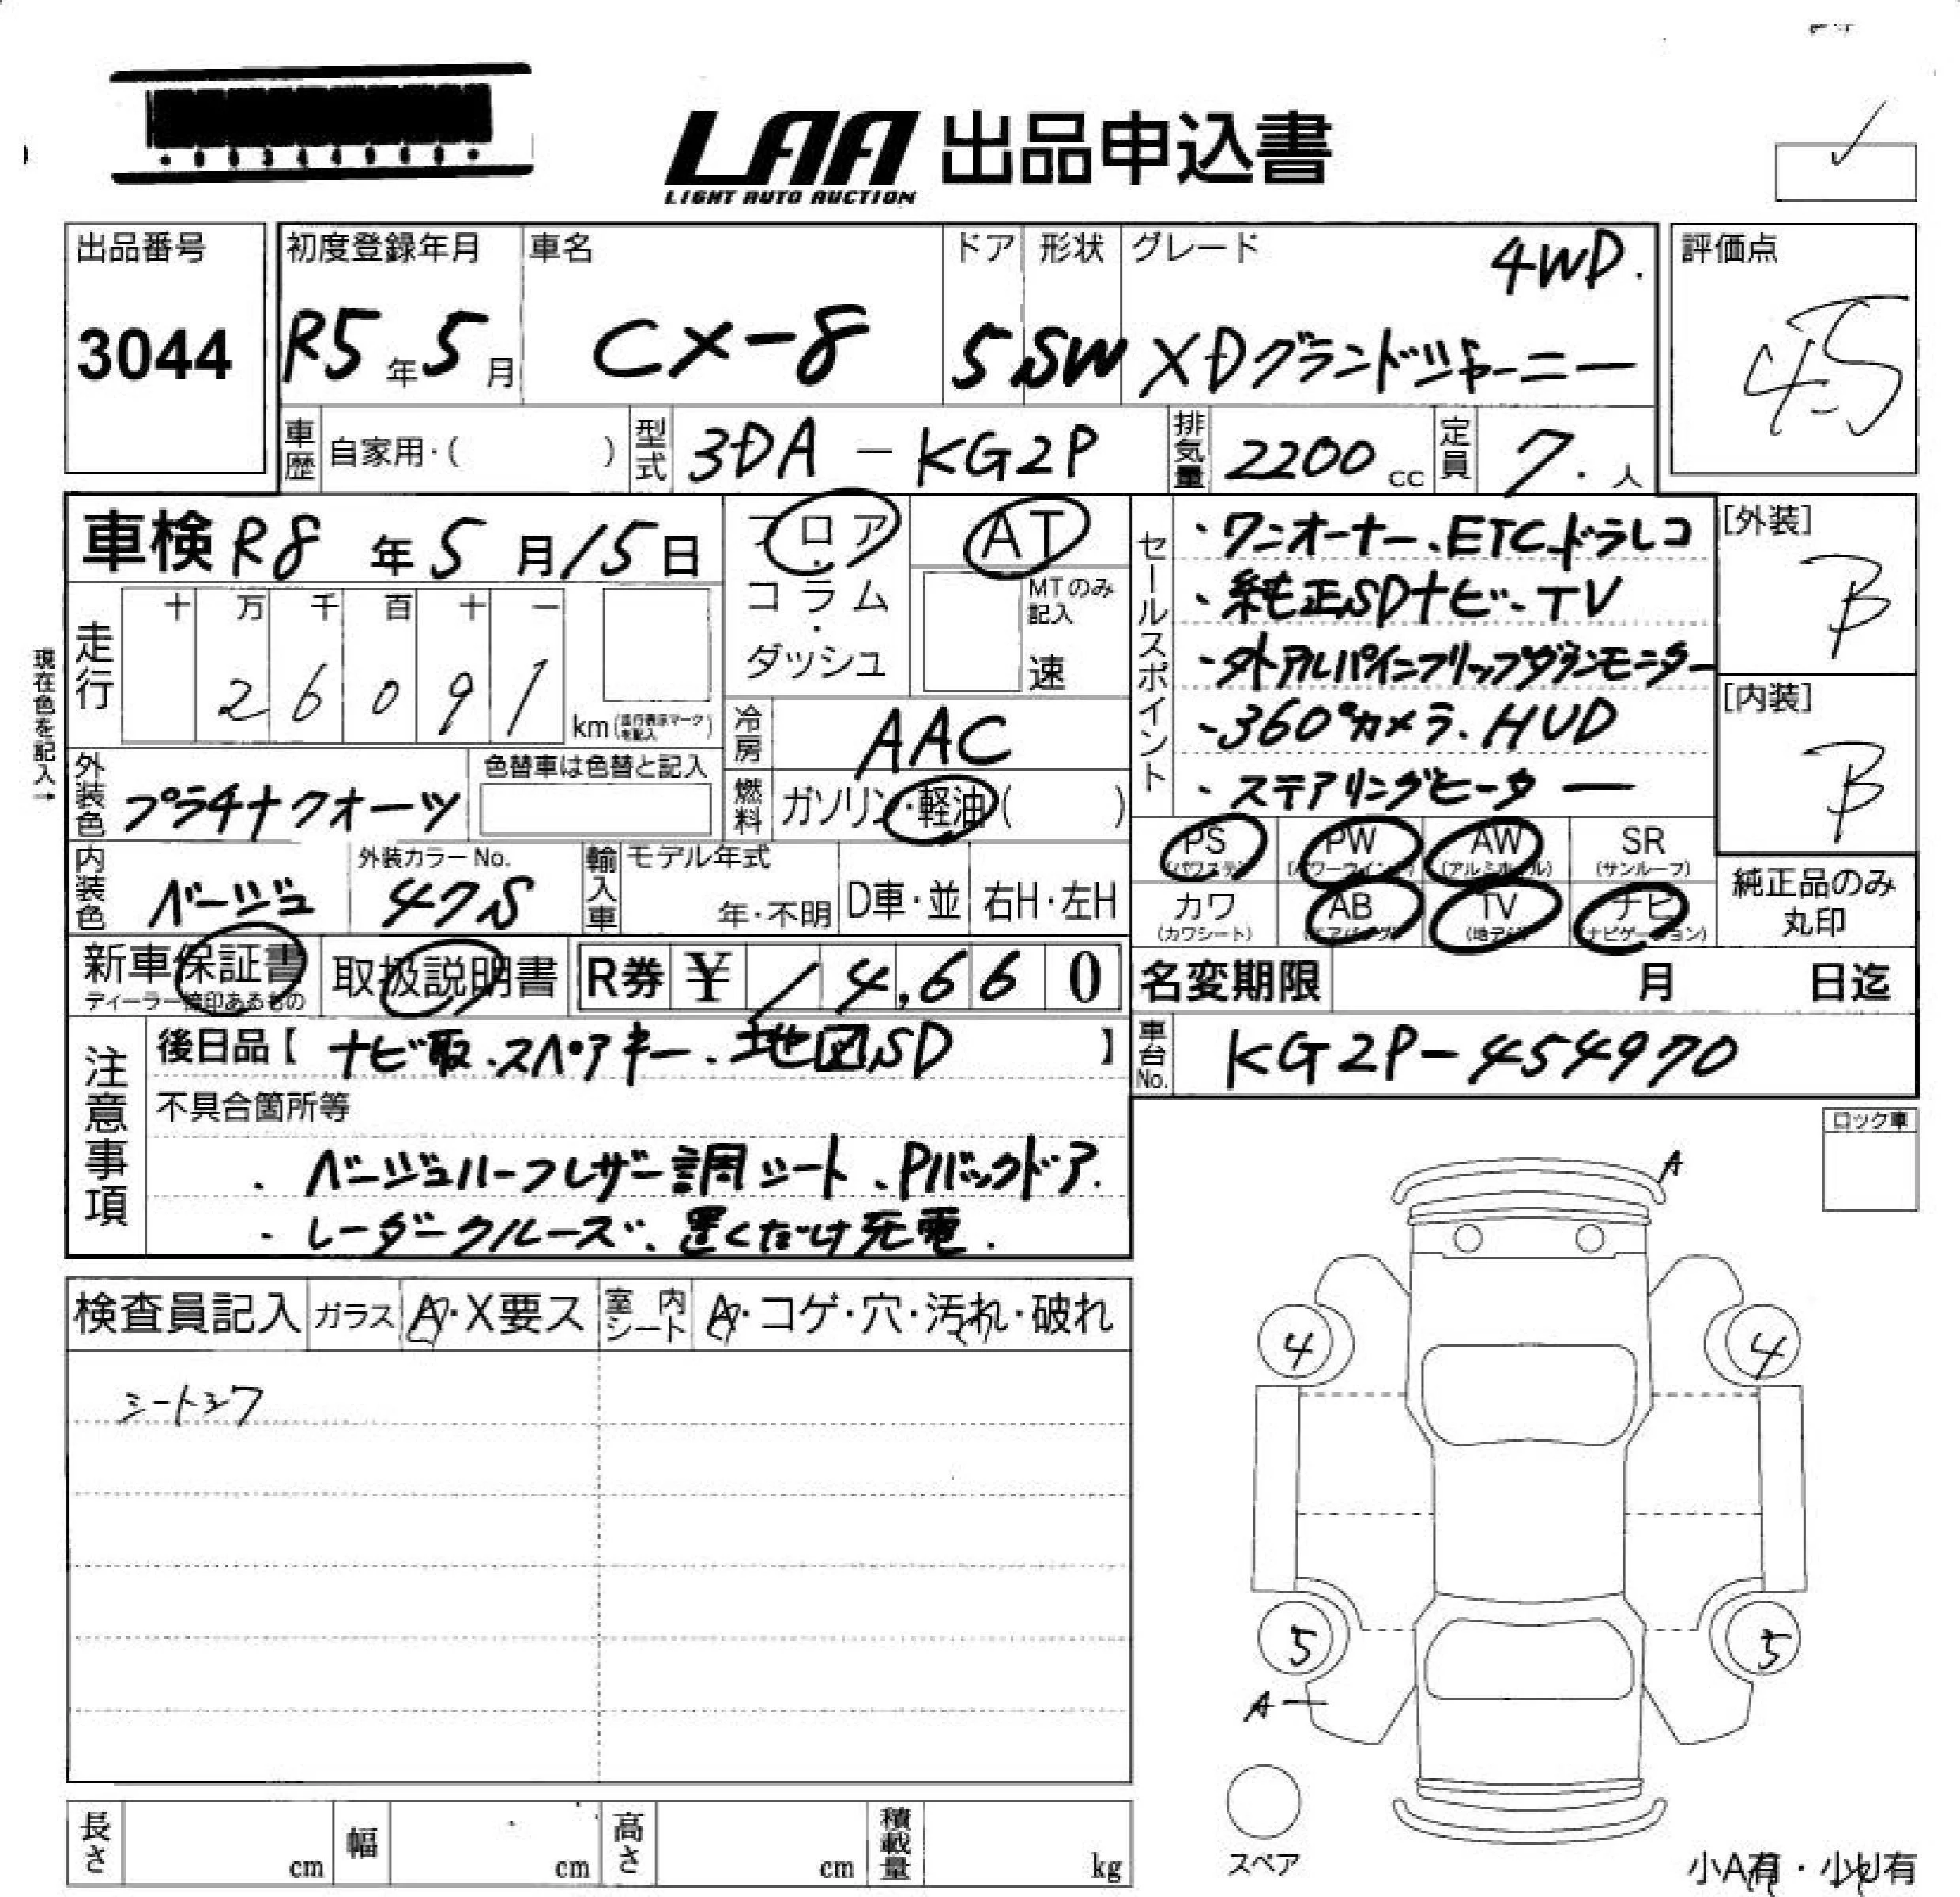 LAA 出品申込書
LIGHT AUTO AUCTION
出品番号
3044
初度登録年月
R5年5月
車名
CX-8
ドア
5
形状
SW
グレード
4WD.
XDグランドジャーニー
評価点
4.5
車歴
自家用・( )
型式
3DA - KG2P
排気量
2200 cc
定員
7. 人
車検 R8年5月15日
フロア・コラム・ダッシュ
AT
MTのみ記入
速
セールスポイント
・ワンオーナー、ETC、ドラレコ
・純正SDナビ、TV
・外アルパインフリップダウンモニター
・360°カメラ、HUD
・ステアリングヒーター
[外装]
B
[内装]
B
現在色を記入→
走行
十 万 千 百 十 一
2 6 0 9 1
km(走行表示マークを記入)
冷房
AAC
燃料
ガソリン・軽油( )
外装色
プラチナクオーツ
色替車は色替と記入
内装色
ベージュ
外装カラーNo.
47S
輸入車
モデル年式
年・不明
D車・並
右H・左H
PS
(パワステ)
PW
(パワーウインド)
AW
(アルミホイル)
SR
(サンルーフ)
カワ
(カワシート)
AB
(エアバッグ)
TV
(地デジ)
ナビ
(ナビゲーション)
純正品のみ
丸印
新車保証書
ディーラー捺印あるもの
取扱説明書
R券 ¥ 14,660
名変期限 月 日迄
注意事項
後日品【ナビ取、スペアキー、地図SD】
車台No.
KG2P-454970
不具合箇所等
・ベージュハーフレザー調シート、Pバックドア.
・レーダークルーズ、置くだけ充電.
ロック車
検査員記入
ガラス
A・X要ス
室内シート
A・コゲ・穴・汚れ・破れ
シートシワ
A
4
4
5
5
A
スペア
長さ cm
幅 cm
高さ cm
積載量 kg
小A有・小U有